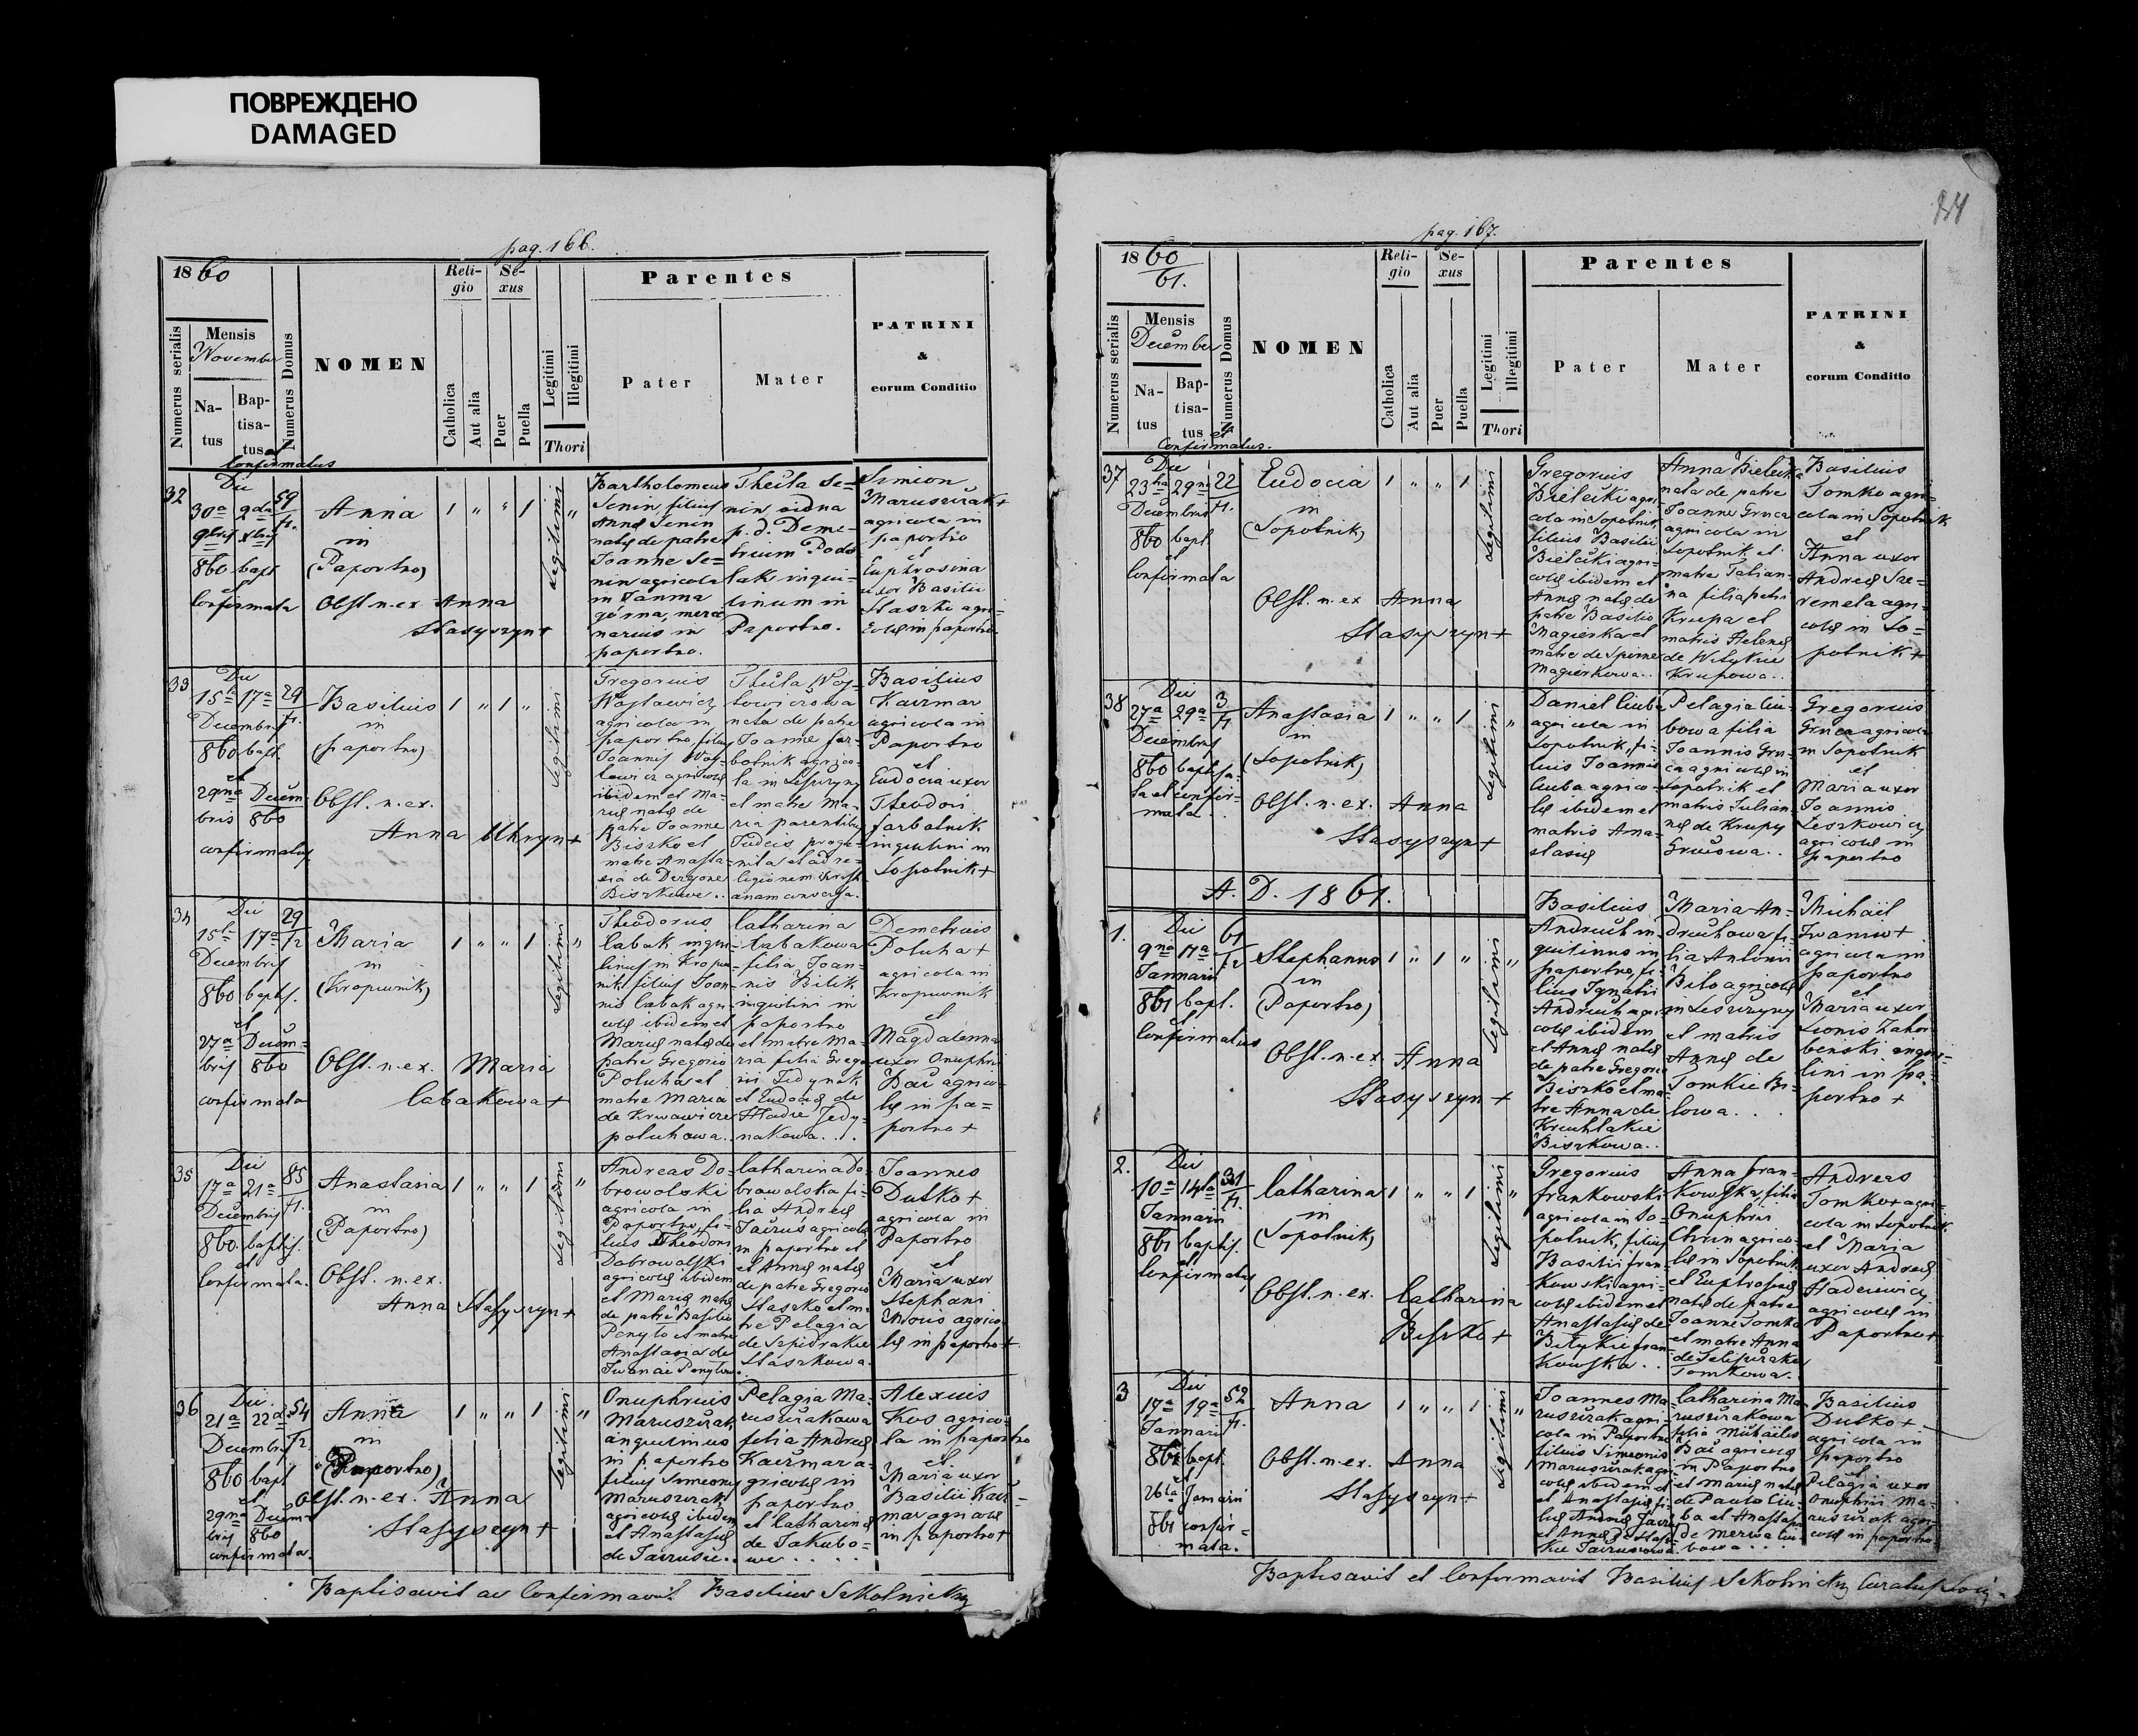 ПОВРЕЖДЕНО
DAMAGED
pag. 166.
1860
Numerus serialis
Mensis
November
Na-
tus
Bap-
tisa-
tus et
Confirmatus
Numerus Domus
NOMEN
Reli-
gio
Catholica
Aut alia
Se-
xus
Puer
Puella
Legitimi
Illegitimi
Thori
Parentes
Pater
Mater
PATRINI
&
eorum Conditio
32
Die
30a 2da 59
860 bapt
et
Confirmata
Anna
in
(Paportno)
Obst. n. ex Anna
Stasyszyn +
1 " " 1 legitimi "
Bartholomeus
Senin, filius
Annę Senin
natę de patre
Joanne Se=
nin agricola
in Tarnina
górna, merce
narius in
paportno.
Thecla Se=
nin vidna
p. d. Deme-
trium Podo
lak inqui-
linum in
Paportno.
Simion
Maruszczak +
agricola in
paportno
et
Euphrosina
uxor Basilii
Staszki agri-
colę in paportno
33
Die
15ta 17a 29
Decembris f1.
860 bapt.
et
29na Decem
bris 860
confirmatus
Basilius
in
(paportno)
Obst. n. ex.
Anna Uhryn +
1 " 1 " legitimi
Gregorius
Wojtowicz
agricola in
paportno, filius
Joannis Woj-
towicz agricolę
ibidem et Ma-
rię natę de
patre Joanne
Biszko et
matre Anasta-
sia de
Biszkowa..
Thecla Woj-
towiczowa
nata de patre
Joanne far-
botnik agrico-
la in Leszczyny
et matre Ma-
ria parentibus
Judeis proge-
nita et ad re-
ligionem christi
anam conversa.
Basilius
Kaczmar
agricola in
Paportno
et
Eudocia uxor
Theodori
farbotnik
inquilini in
Sopotnik +
34
Die 29
15ta 17a f2
Decembris
860 baptis.
et
27a Decem=
bris 860
confirmata
Maria
in
(Kropiwnik)
Obst. n. ex. Maria
Cabakowa +
1 " " 1 legitimi "
Theodorus
Cabak inqui-
linus in Kropiw
nik filius Joan-
nis Cabak agri-
colę ibidem et
Marię natę de
patre Gregorio
Poluha et
matre Maria
de Krwawicze
poluhowa..
Catharina
Cabakowa
filia Joan-
nis Bilik
inquilini in
paportno
et matre Ma-
ria filia Grego
rii Fedynak
et Eudocię de
Hadie Fedy-
nakowa...
Demetrius
Poluha +
agricola in
Kropiwnik
et
Magdalenna
uxor Onuphri
Bac agrico-
lę in pa=
portno +
35
Die
17a 21a 85
Decembris f1.
860 baptis.
et
Confirmata.
Anastasia
in
(Paportno)
Obst. n. ex.
Anna Stasyszyn +
1 " " 1 legitimi "
Andreas Do-
browolski
agricola in
Paportno, fi-
lius Theodori
Dobrowolski
agricolę ibidem
et Marię natę
de patre Basilio
Penyło et matre
Anastasia de
Catharina Do-
browolska fi-
lia Andreę
Jaciuś agricolę
in paportno et
et Annę natę
de patre Gregorio
Staszko et ma
tre Pelagia
Staszkowa.
Joannes
Dutko +
agricola in
Paportno
et
Maria uxor
Stephani
Wous agrico-
lę in paportno +
36
Die
21a 22da 54
Decembris f2.
860 bapt
et
29na Decem-
bris 860
confirmata.
Anna
in
(Paportno)
Obst. n. ex. Anna
Stasyszyn +
1 " " 1 legitimi "
Onuphrius
Maruszczak,
inquilinus
in paportno
filius Simeonis
Maruszczak
agricolę ibidem
et Anastasię
Pelagia Ma-
ruszczakowa
filia Andreę
Kaczmar a-
gricolę in
paportno
et Catharinę
de Jakubo-
we . . .
Alexius
Kos agrico-
la in paportno
et
Maria uxor
Basilii Kacz-
mar agricolę
in paportno +
Baptisavit ac Confirmavit Basilius Szkolnicky
pag. 167.
1860
61.
Numerus serialis
Mensis
December
Na-
tus
Bap-
tisa-
tus et
Confirmatus.
Numerus Domus
NOMEN
Reli-
gio
Catholica
Aut alia
Se-
xus
Puer
Puella
Legitimi
Illegitimi
Thori
Parentes
Pater
Mater
PATRINI
&
eorum Conditio
37
Die
23tia 29na 22
Decembris f1.
860 bapt.
et
Confirmata
Eudocia
in
(Sopotnik)
Obst. n. ex Anna
Stasyszyn +
1 " " 1 legitimi
Gregorius
Bielecki agri-
cola in Sopotnik,
filius Basilii
Bielecki agri-
colę ibidem et
Annę natę de
patre Basilio
Magierka et
matre de
Magierkowa..
Anna Bielecka
nata de patre
Joanne Gruca
agricola in
Sopotnik et
matre Tatian-
na filia petri
Krupa et
matris Helenę
de Witykie
Krupowa..
Basilius
Tomko agri-
cola in Sopotnik
et
Anna uxor
Andreę Sze-
remeta agri-
colę in So=
potnik +
38
Die 3
27a 29a f1
Decembris
860 baptisa-
ta et confir-
mata.
Anastasia
in
(Sopotnik)
Obst. n. ex. Anna
Stasyszyn +
1 " " 1 legitimi "
Daniel Ciuba
agricola in
Sopotnik, fi-
lius Joannis
Ciuba agrico-
lę ibidem et
matris Ana-
stasię
Pelagia Ciu-
bowa filia
Joannis Gru-
ca agricolę in
Sopotnik et
matris Julian-
nę de Krupy
Grucowa..
Gregorius
Gruca agricola
in Sopotnik
et
Maria uxor
Joannis
Leszkowicz
agricolę in
paportno
A. D. 1861.
1.
Die 61
9na 17a f2
Januarii
861 bapt.
et
Confirmatus
Stephanus
in
(Paportno)
Obst. n. ex Anna
Stasyszyn +
1 " 1 " legitimi "
Basilius
Andruch in-
quilinus in
paportno, fi-
lius Ignatii
Andruch agri-
colę ibidem
et Annę natę
de patre Gregorio
Biszko et ma-
tre Anna de
Kruhlakie
Biszkowa..
Maria An-
druchowa fi-
lia Antonii
Biło agricolę
in Leszczyny
et matris
Annę de
Tomkie Bi-
lowa. . .
Michaiil
Iwaniw +
agricola in
paportno
et
Maria uxor
Leonis Zahor-
benski inqui-
lini in pa-
portno +
2.
Die
10a 14ta 31
Januarii f1.
861 baptis.
et
Confirmatus
Catharina
in
(Sopotnik)
Obst. n. ex. Catharina
Biszko +
1 " " 1 legitimi "
Gregorius
frankowski
agricola in So-
potnik, filius
Basilii fran-
kowski agri-
colę ibidem et
Anastasię de
Bitykie fran-
kowska..
Anna fran-
kowska, filia
Onuphrii
Chrin agrico-
lę in Sopotnik
et Euphrosinę
natę de patre
Joanne Tomko
et matre Anna
Tomkowa.
Andreas
Tomko agri-
cola in Sopotnik.
et Maria
uxor Andreę
Hadziewicz
agricolę in
Paportno +
3
Die
17a 19a 52
Januarii f1.
861 bapt.
et
26ta Januarii
861 confir-
mata.
Anna
Obst. n. ex. Anna
Stasyszyn +
1 " " 1 legitimi "
Joannes Ma-
ruszczak agri-
cola in Paportno
filius Simeonis
Maruszczak agri-
colę ibidem et
et Anastasię fi-
lię Andreę Jaciuś
et Annę de Stasz-
kie Jaciusiowa
Catharina Ma-
ruszczakowa
filia Michaelis
Bac agricolę
in Paportno
et Marię natę
de Paulo Ciu-
ba et Anastasia
de Merwa Ciu-
bowa . . .
Basilius
Dutko +
agricola in
paportno
et
Pelagia uxor
Onuphrii Ma-
ruszczak agri-
colę in paportno.
Baptisavit et Confirmavit Basilius Szkolnicky